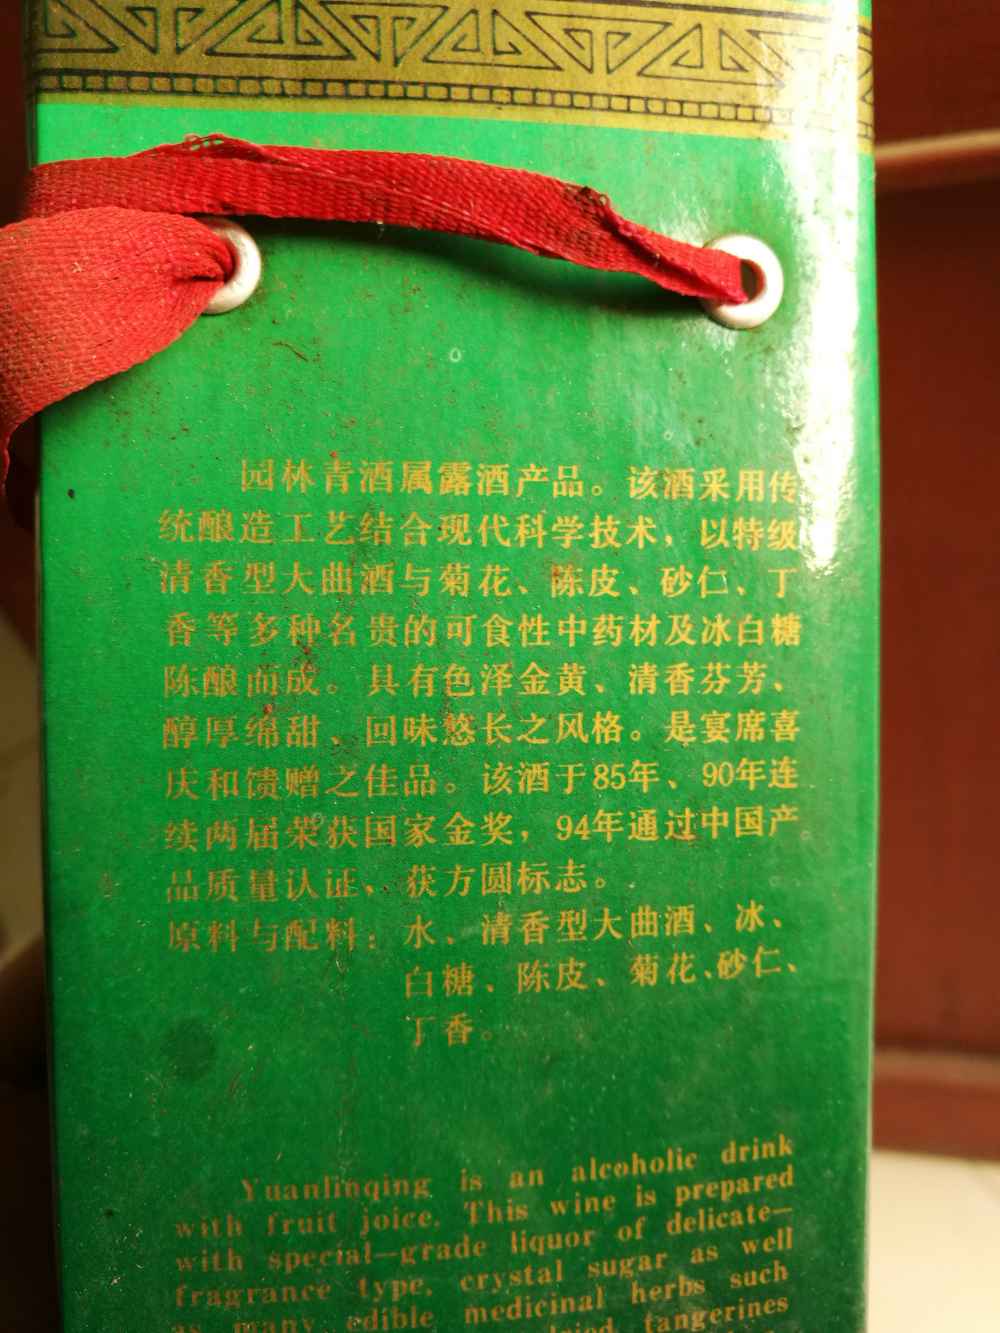 园林青酒属露酒产品。该酒采用传
统酿造工艺结合现代科学技术，以特级
清香型大曲酒与菊花、陈皮、砂仁、丁
香等多种名贵的可食性中药材及冰白糖
陈酿而成。具有色泽金黄、清香芬芳、
醇厚绵甜、回味悠长之风格。是宴席喜
庆和馈赠之佳品。该酒于85年、90年连
续两届荣获国家金奖，94年通过中国产
品质量认证、获方圆标志。
原料与配料：水、清香型大曲酒、冰、
白糖、陈皮、菊花、砂仁、
丁香。
Yuanlinqing is an alcoholic drink
with fruit joice. This wine is prepared
with special-grade liquor of delicate-
fragrance type, crystal sugar as well
as many edible medicinal herbs such
dried tangerines